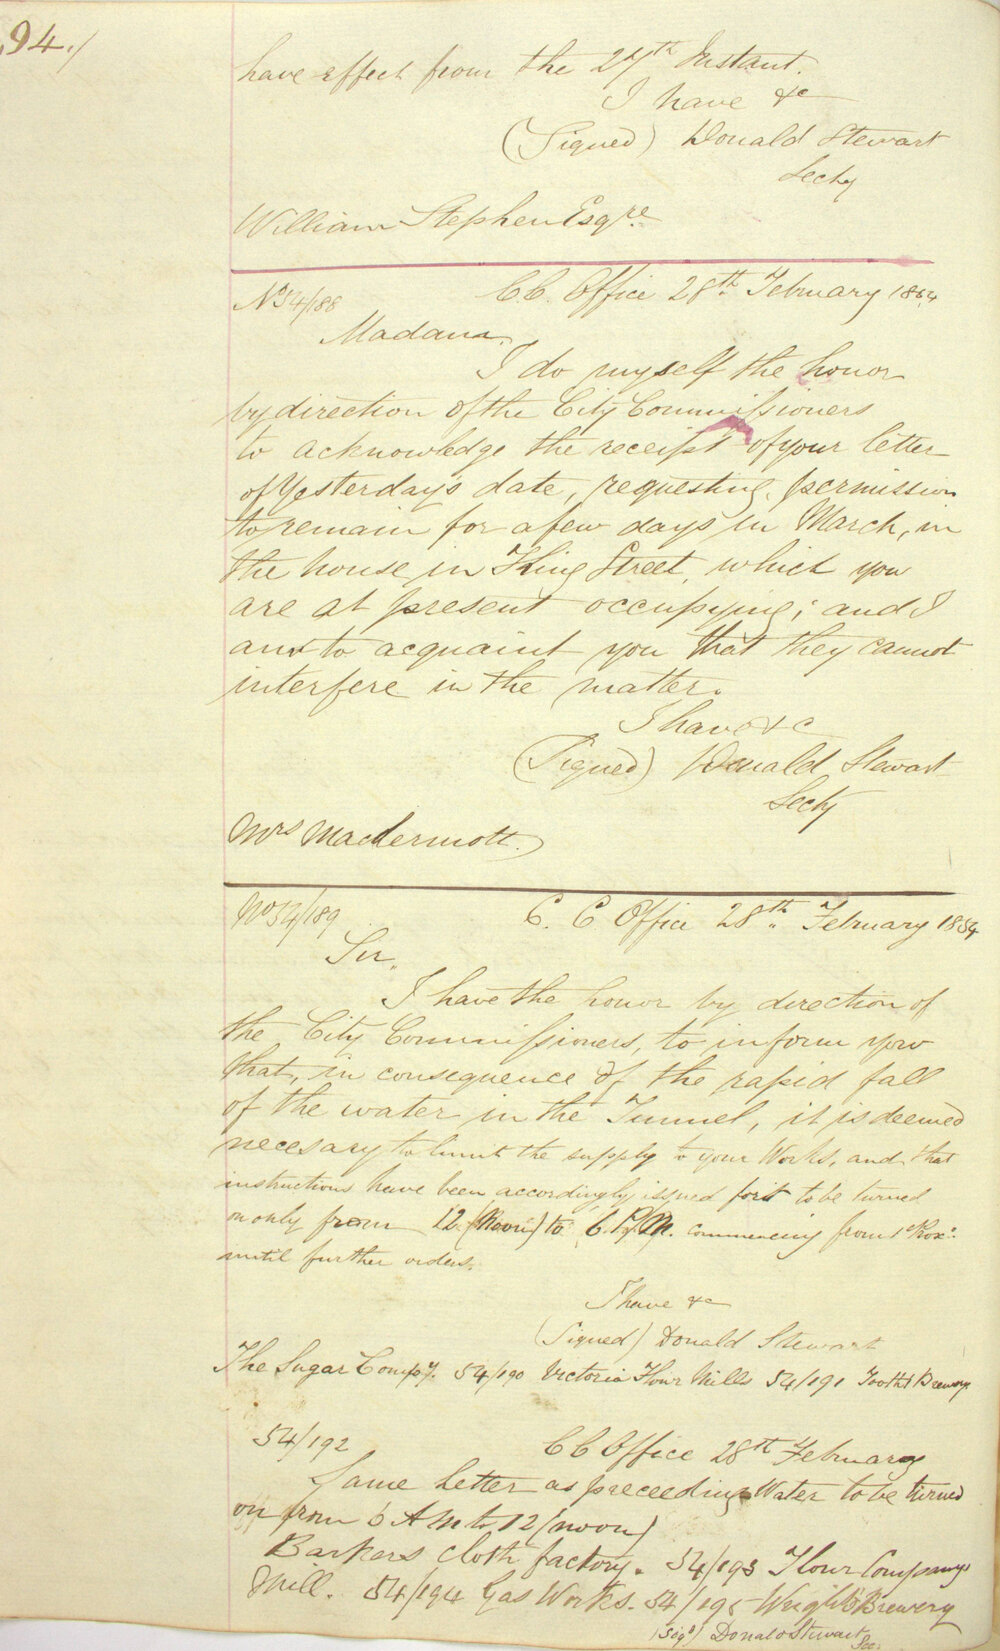 94./
have effect from the 27th Instant.
I have &c
(Signed) Donald Stewart
Secty
William Stephen Esqre
No 54/188 C.C. Office 28th February 1854
Madam.
I do myself the honor
by direction of the City Commissioners
to acknowledge the receipt of your letter
of Yesterday's date, requesting permission
to remain for a few days in March, in
the house in King Street, which you
are at present occupying; and I
am to acquaint you that they cannot
interfere in the matter.
I have &c
(Signed) Donald Stewart
Secty
Mrs Macdermott.
No 54/189 C. C Office 28th February 1854
Sir,
I have the honor by direction of
the City Commissioners, to inform you
that, in consequence of the rapid fall
of the water in the Tunnel, it is deemed
necesary to limit the supply to your Works, and that
instructions have been accordingly issued for it to be turned
on only from 12 (Noon) to 6 P.M. commencing from 1st Prox:
until further orders.
I have &c
(Signed) Donald Stewart
The Sugar Compy. 54/190 Victoria Flour Mills 54/191 Tooths Brewery
54/192 C C Office 28th February
Same letter as preceeding Water to be turned
on from 6 A M to 12 (noon)
Barkers cloth factory. 54/193 Flour Companys
Mill. 54/194 Gas Works. 54/195 Wrights Brewery
(Sigd) Donald Stewart
Sec: